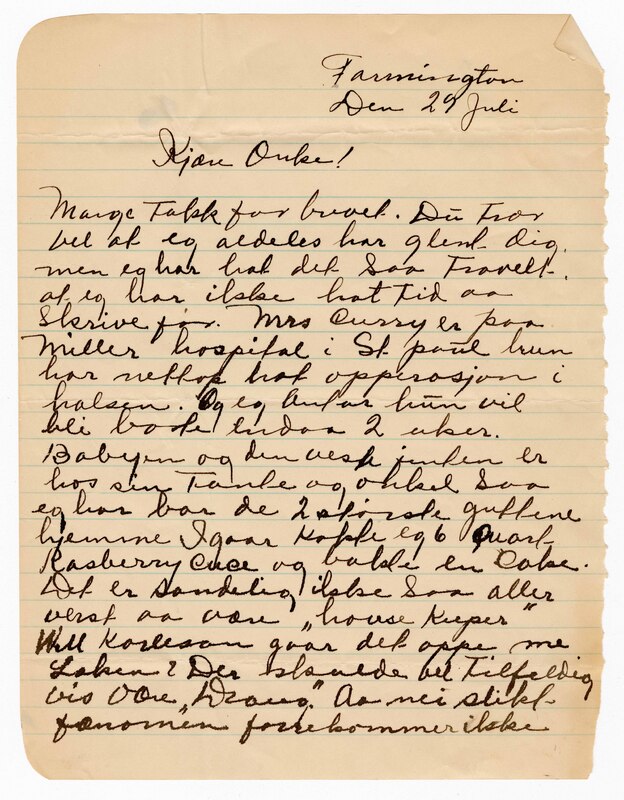 Farmington
Den 29 Juli
Kjære Onke!
Mange Takk for brevet. Du Tror
vel at eg aldeles har glemt dig,
men eg har hat det Saa Travelt.
at eg har ikke hat Tid aa
Skrive før. Mrs Curry er paa
Miller hospital i St paul hun
har nettop hat opperasjon i
halsen. Og eg Antar hun vil
bli borte endaa 2 uker.
Babyen og den vesle jenten er
hos sin Tante og onkel Saa
eg har bar de 2 største guttene
hjemme Igaar Kokte eg 6 Quart
Rasberry Cuce og bakte en Cake.
Det er Sandelig ikke Saa aller
verst aa være „house Keeper"
Will Karleson gaar det oppe me
Laken? Der skulde vel Tilfeldig
vis være Aa nei slikt
fænomen forrekommer ikke